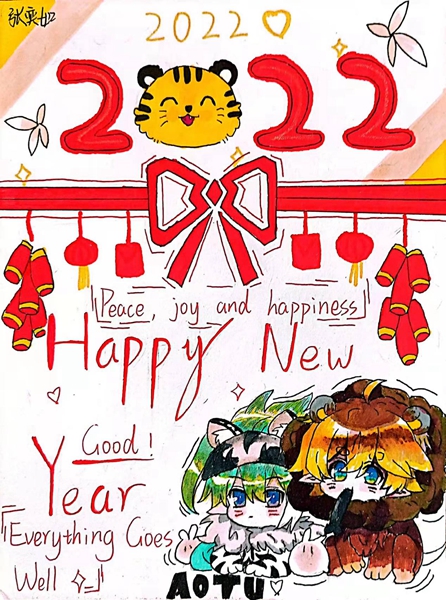 张奕如
2022
2022
『Peace, joy and happiness』
Happy New
Good!
Year
『Everything Goes
Well』
AOTU